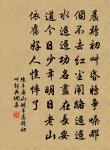 晨雞初叫昏鴉爭噪那
個不去紅塵鬧路遙遙
水迢迢功名盡在長安
道今日少年明日老山
依舊好人憔悴了
陳草庵山坡羊晨雞初
叫